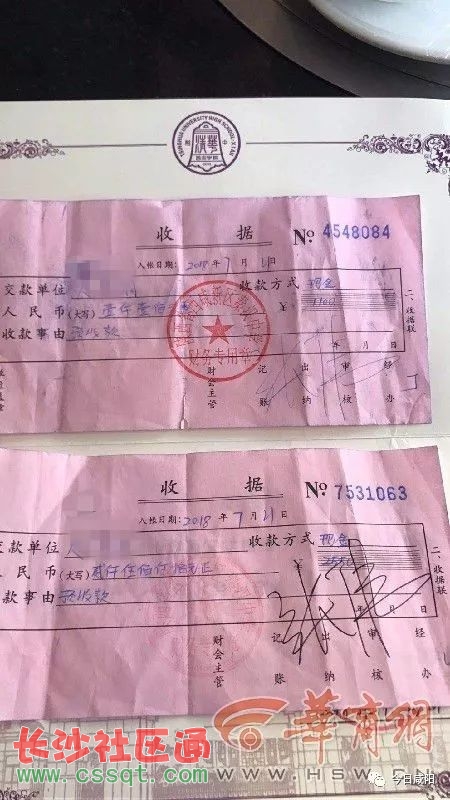 TSINGHUA UNIVERSITY HIGH SCHOOL-XI'AN
收据 No 4548084
入帐日期：2018年7月21日
交款单位 收款方式 现金
人民币(大写) 壹仟壹佰 ¥ 1100
收款事由 预收款 年 月 日
财务专用章
二、收据联
财会主管 记账 出纳 审核 经办
收据 No 7531063
入帐日期：2018年7月21日
款单位 收款方式 现金
民币(大写) ¥
款事由 预收款 年 月 日
二、收据联
财会主管 记账 出纳 审核 经办
长沙社区通
www.cssqt.com
华商网
WWW.HSW.CN
今日咸阳